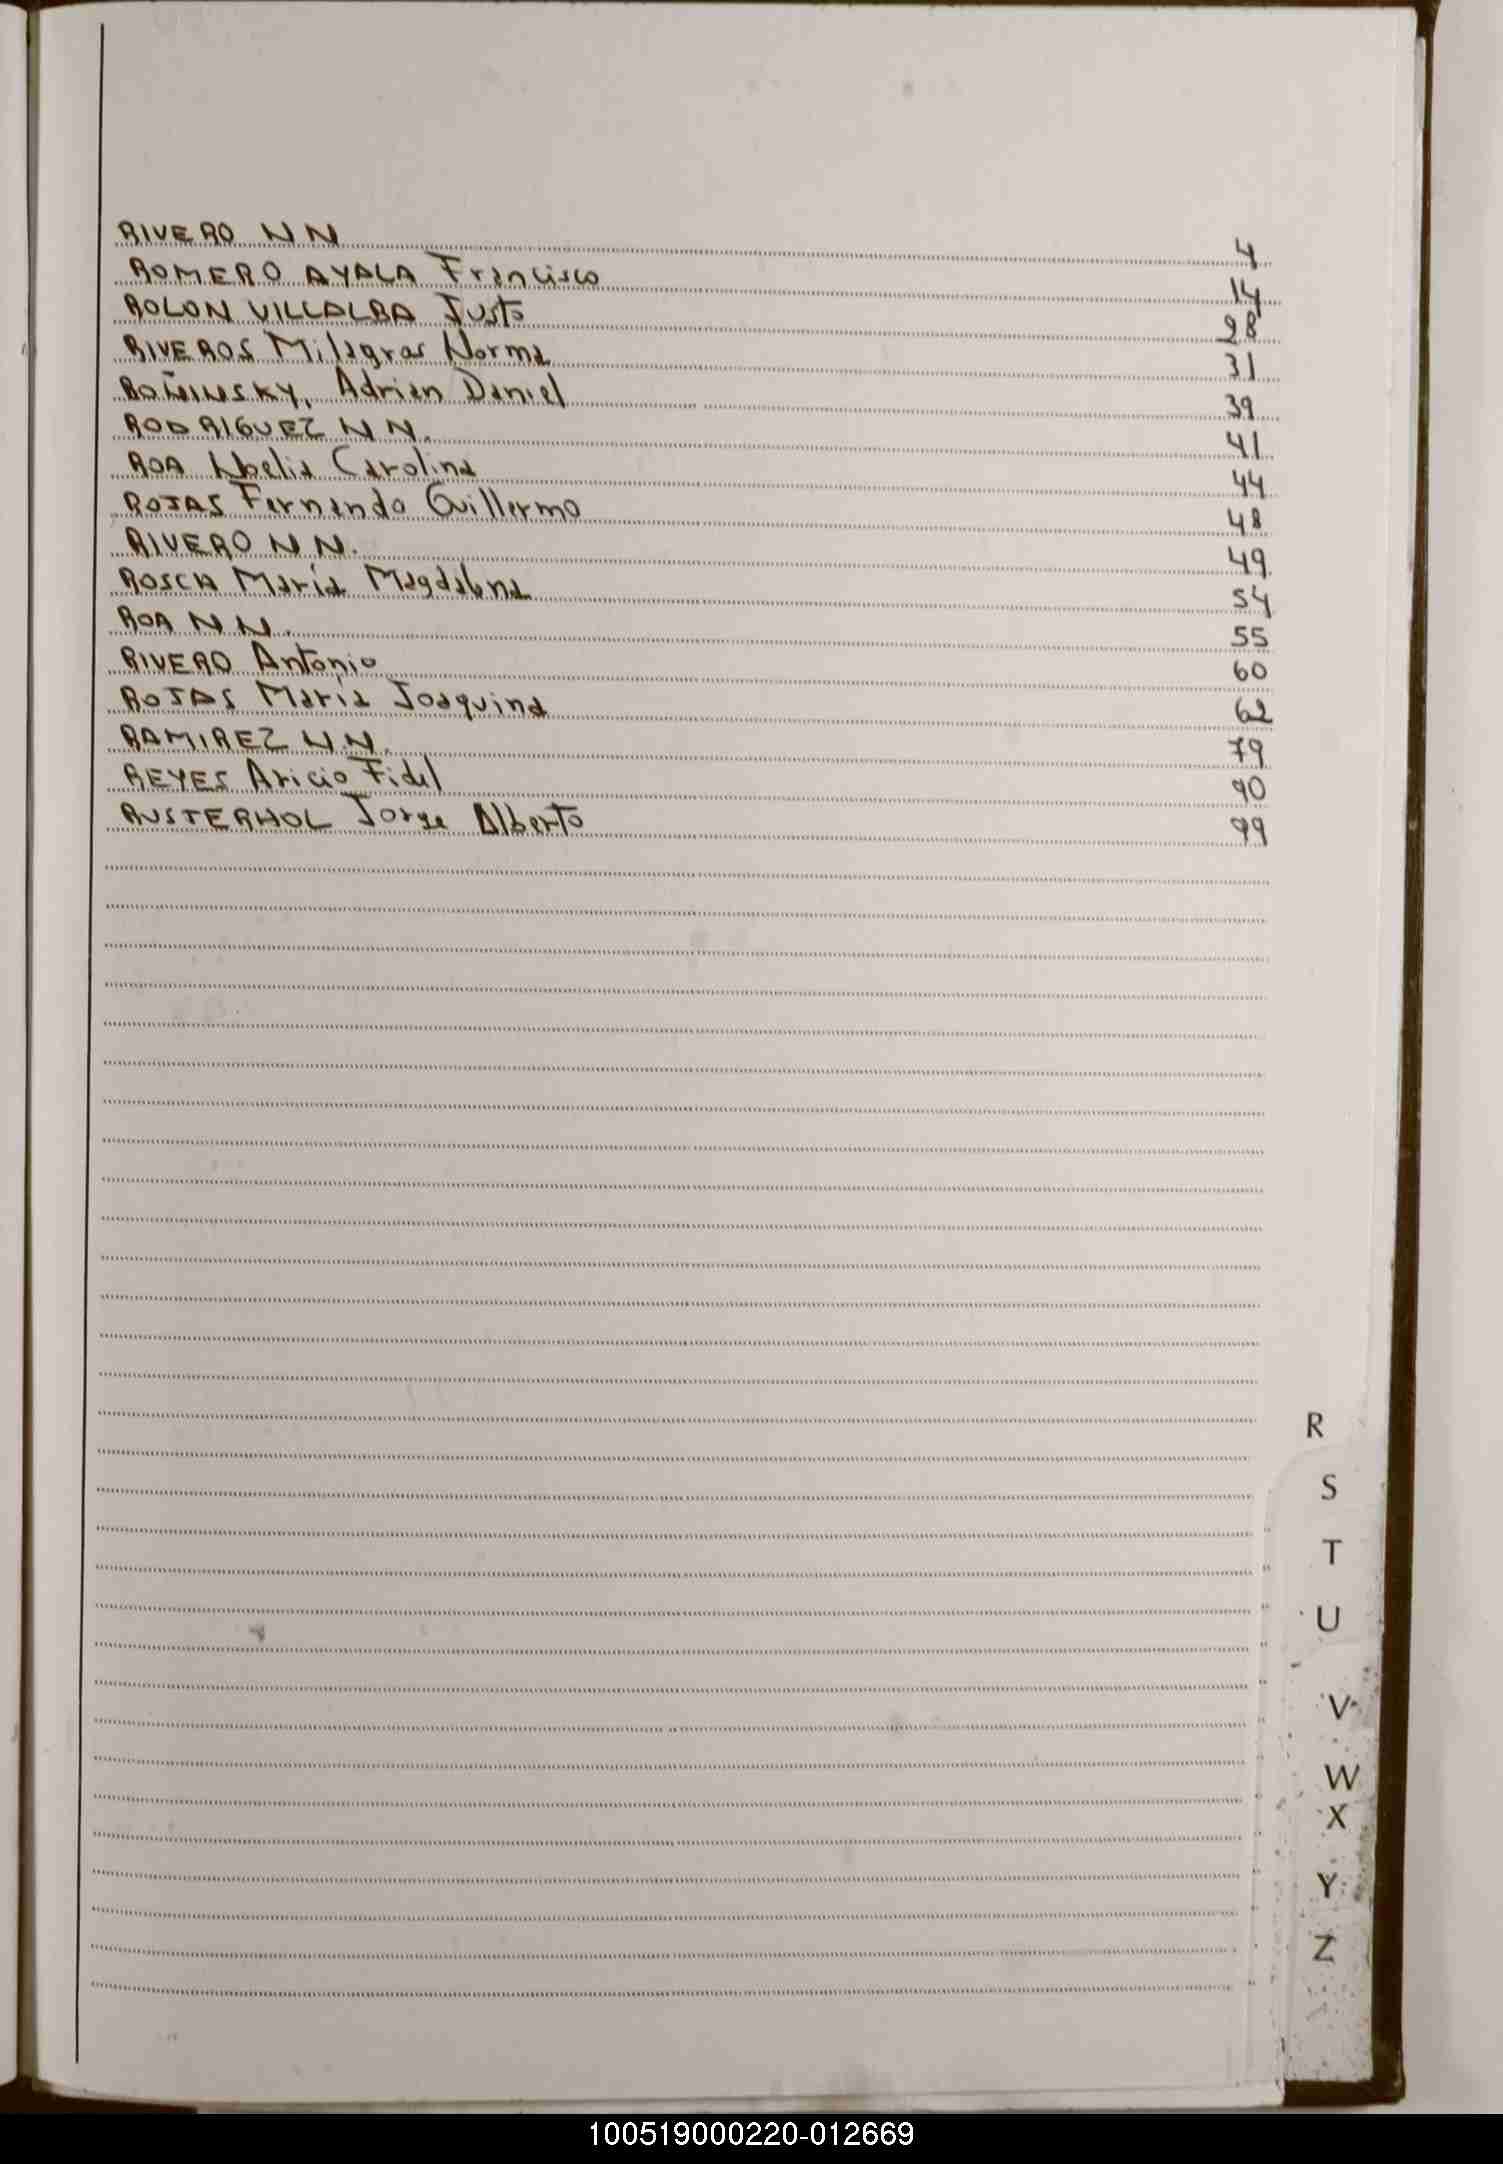 RIVERO NN 4
ROMERO AYALA Francisco 14
ROLON VILLALBA Justo 28
RIVEROS Milagros Norma 31
ROÑINSKY, Adrian Daniel 39
RODRIGUEZ N N. 41
ROA Noelia Carolina 44
ROJAS Fernando Guillermo 48
RIVERO N N. 49
ROSCH María Magdalena 54
ROA N N. 55
RIVERO Antonio 60
ROJAS María Joaquina 62
RAMIREZ N.N. 79
REYES Aricio Fidel 90
RUSTERHOL Jorge Alberto 99
R
S
T
U
V
W
X
Y
Z
100519000220-012669